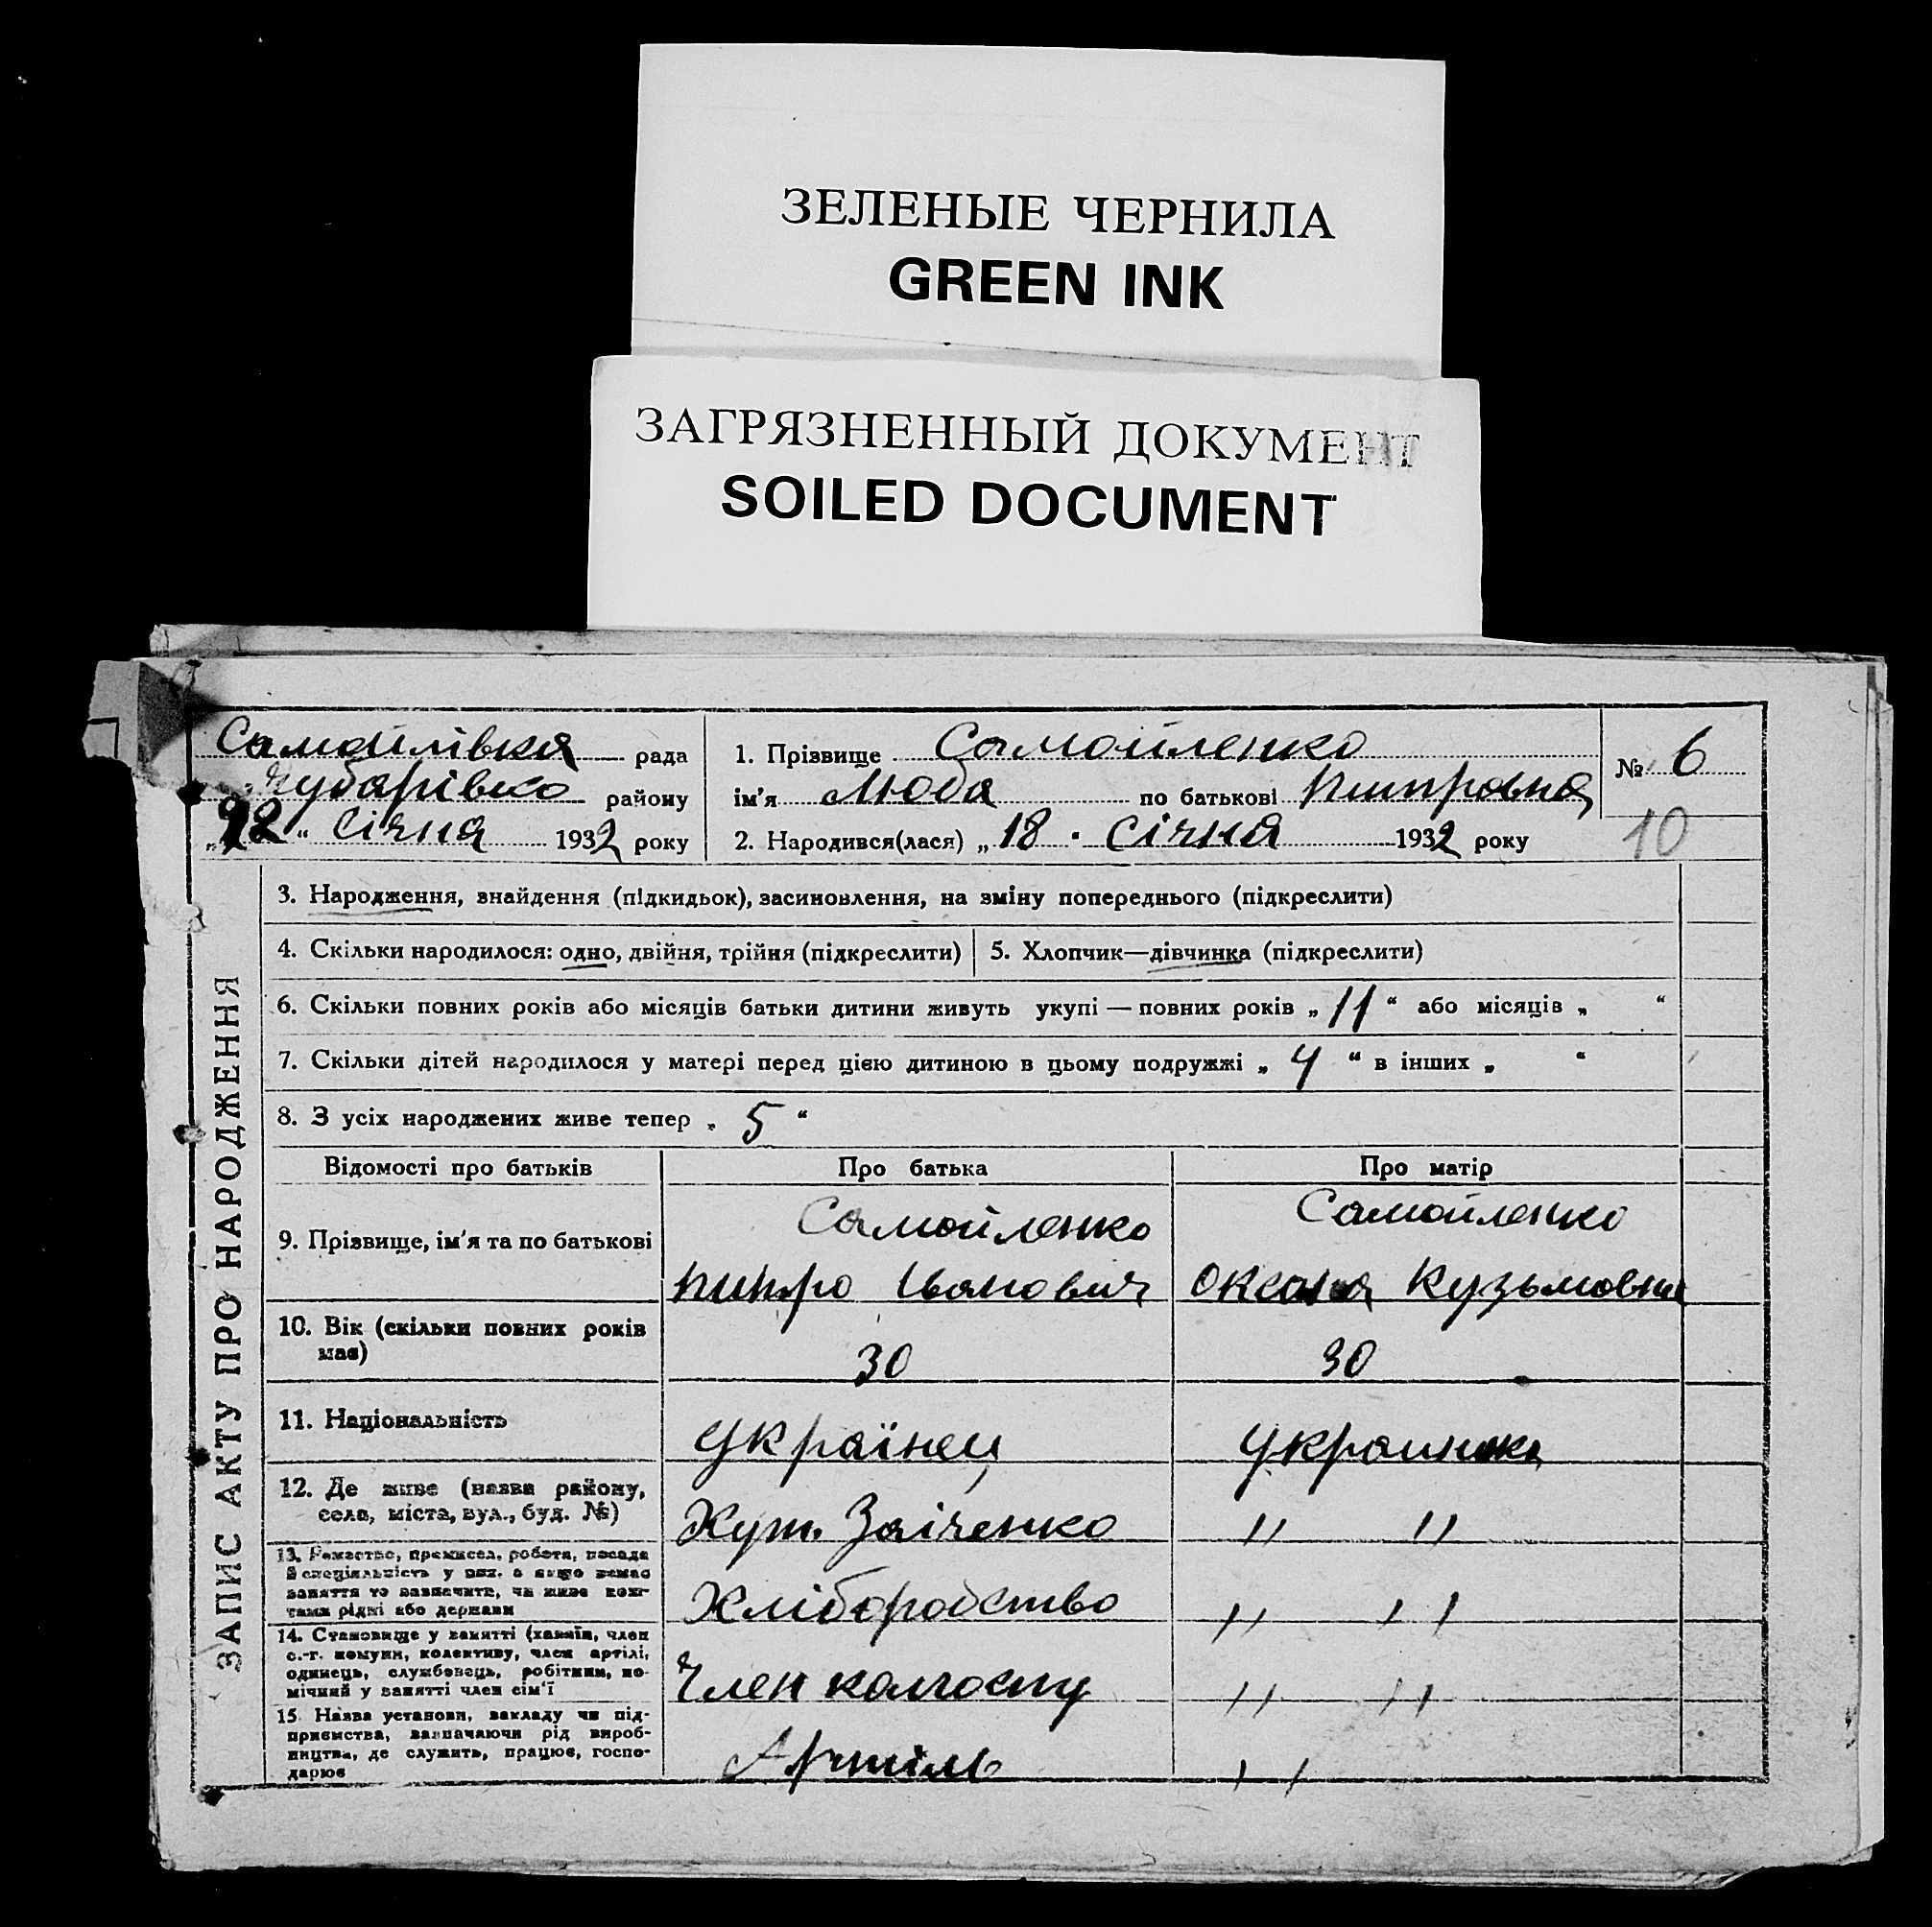 ЗЕЛЕНЫЕ ЧЕРНИЛА
GREEN INK
ЗАГРЯЗНЕННЫЙ ДОКУМЕНТ
SOILED DOCUMENT
Самойлівка рада
Чубарівко району
„22“ січня 1932 року
1. Прізвище Самойленко
ім'я Люба по батькові Питровна
2. Народився(лася) „18 . січня 1932 року
№ 6
10
ЗАПИС АКТУ ПРО НАРОДЖЕННЯ
3. Народження, знайдення (підкидьок), засиновлення, на зміну попереднього (підкреслити)
4. Скільки народилося: одно, двійня, трійня (підкреслити)
5. Хлопчик—дівчинка (підкреслити)
6. Скільки повних років або місяців батьки дитини живуть укупі — повних років „11“ або місяців „ “
7. Скільки дітей народилося у матері перед цією дитиною в цьому подружжі „4“ в інших „ “
8. З усіх народжених живе тепер „5“
Відомості про батьків Про батька Про матір
9. Прізвище, ім'я та по батькові
Самойленко
Питро Іванович
Самойленко
Оксана Кузьмовна
10. Вік (скільки повних років
має)
30
30
11. Національність
Українец
Украинка
12. Де живе (назва району,
села, міста, вул., буд. №)
Хут. Заіченко
" "
13. Ремество, промисел, робота, посада
й спеціяльність у них, а якщо немає
заняття то зазначити, чи живе кош-
тами рідні або держави
Хліборобство
" "
14. Становище у занятті (хазяїн, член
с.-г. комуни, колективу, член артілі,
одинець, службовець, робітник, по-
мічний у занятті член сім'ї
Член колгоспу
" "
15. Назва установи, закладу чи під-
приємства, зазначаючи рід вироб-
ництва, де служить, працює, госпо-
дарює
Артіль
"